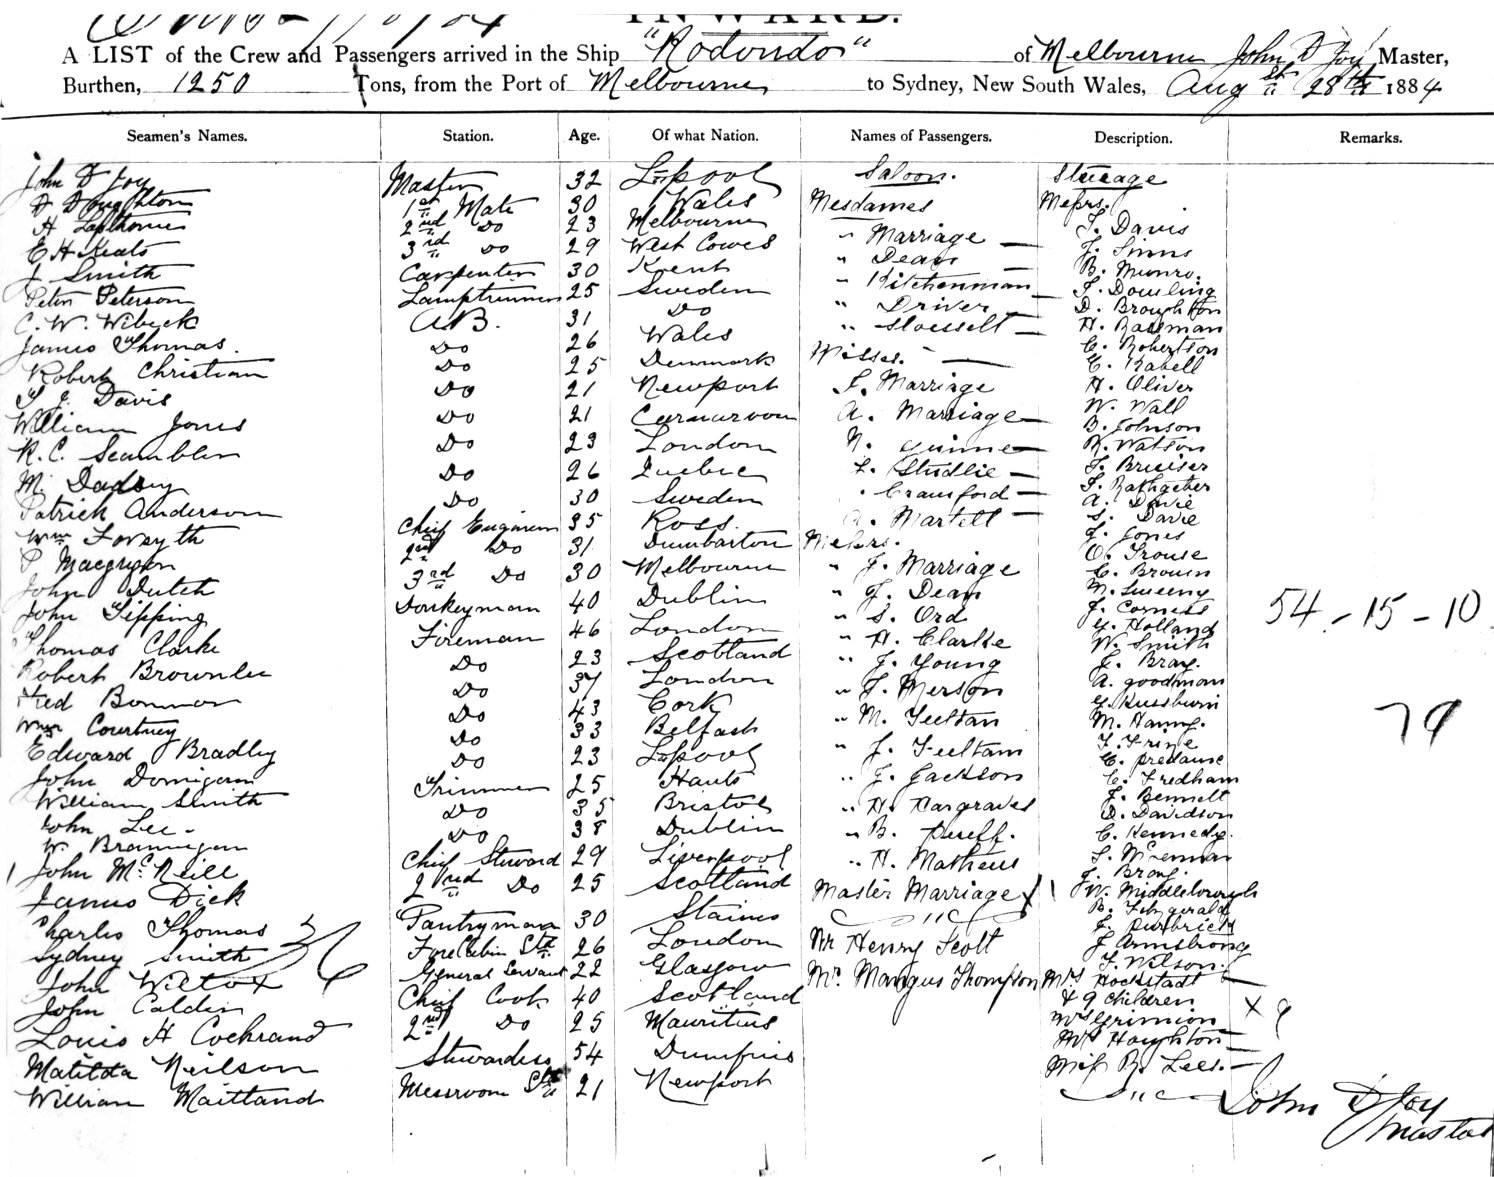 INWARD.
A LIST of the Crew and Passengers arrived in the Ship "Rodondo" of Melbourne John D Joy Master,
Burthen, 1250 Tons, from the Port of Melbourne to Sydney, New South Wales, Augst 28th 1884
Seamen's Names. Station. Age. Of what Nation. Names of Passengers. Description. Remarks.
John D Joy Master 32 L'pool
D Doughton 1st Mate 30 Wales
H Lapthorne 2nd Do 23 Melbourne
E H Keats 3rd Do 29 West Cowes
J Smith Carpenter 30 Kent
Peter Peterson Lamptrimmer 25 Sweden
C. W. Wibeck A.B. 31 Do
James Thomas. Do 26 Wales
Robert Christian Do 25 Denmark
T J. Davis Do 21 Newport
William Jones Do 21 Carnarvon
R. C. Scamblen Do 23 London
M. Do 26 Quebec
Patrick Anderson Do 30 Sweden
Wm Forsyth Chief Engineer 35 Ross.
P Macgregor 2nd Do 31 Dumbarton
John Dutch 3rd Do 30 Melbourne
John Tipping Donkeyman 40 Dublin
Thomas Clarke Fireman 46 London
Robert Brownlee Do 23 Scotland
Fred Bonmon Do 37 London
Wm Courtney Do 43 Cork
Edward Bradley Do 33 Belfast
John Donigan Do 23 L'pool
William Smith Trimmer 25 Hants
John Lee. Do 35 Bristol
W. Brannigan Do 38 Dublin
John McNeill Chief Steward 29 Liverpool
James Dick 2nd Do 25 Scotland
Charles Thomas Pantryman 30 Staines
Sydney Smith Fore Cabin Std 26 London
John Wiltox General Servant 22 Glasgow
John Calder Chief Cook 40 Scotland
Louis H Cochrand 2nd Do 25 Mauritius
Matilda Neilson Stewardess 54 Dumfries
William Maitland Messroom Std 21 Newport
36
Saloon.
Mesdames
" Marriage
" Dean
" Kitchenman
" Driver
" Stoesselt
Misses.
F. Marriage
A. Marriage
N. Quinne
F. Studlie
" Crawford
A. Martell
Messrs.
" J. Marriage
" J. Dean
" S. Ord
" H. Clarke
" J. Young
" J. Merson
" M. Feeltan
" J. Feeltam
" J. Jackson
" H. Hargraves
" B. Dueff.
" H. Matheus
Master Marriage X 1
Mr Henry Scott
Mr. Mangus Thompson
Steerage
Messrs.
T. Davis
J. Sinns
B. Munro.
F. Dowling
D. Broughton
H. Bassman
C. Robertson
C. Rabell
H. Oliver
W. Wall
B. Johnson
R. Watson
T. Bruiser
F. Rathgeber
A. Davie
S. Davie
J. Jones
O. Trouse
C. Brown
M. Sweeny
J. Corness
G. Holland
W. Smith
J. Bray.
A. goodman
G. Kussburn
M. Hanny.
T. Frine
C. predause
C. Fredham
J. Bennett
D. Davidson
C. Kennedy.
J. Bray.
W. Middleborough
B. Fitzgerald
J. Purbrick
J Armstrong
T. Wilson.
Mrs Hockstadt
& 9 Children
Mrs Grimion
Mrs Houghton
Miss R. Lees.
54 - 15 - 10
79
X 9
John D Joy
Master